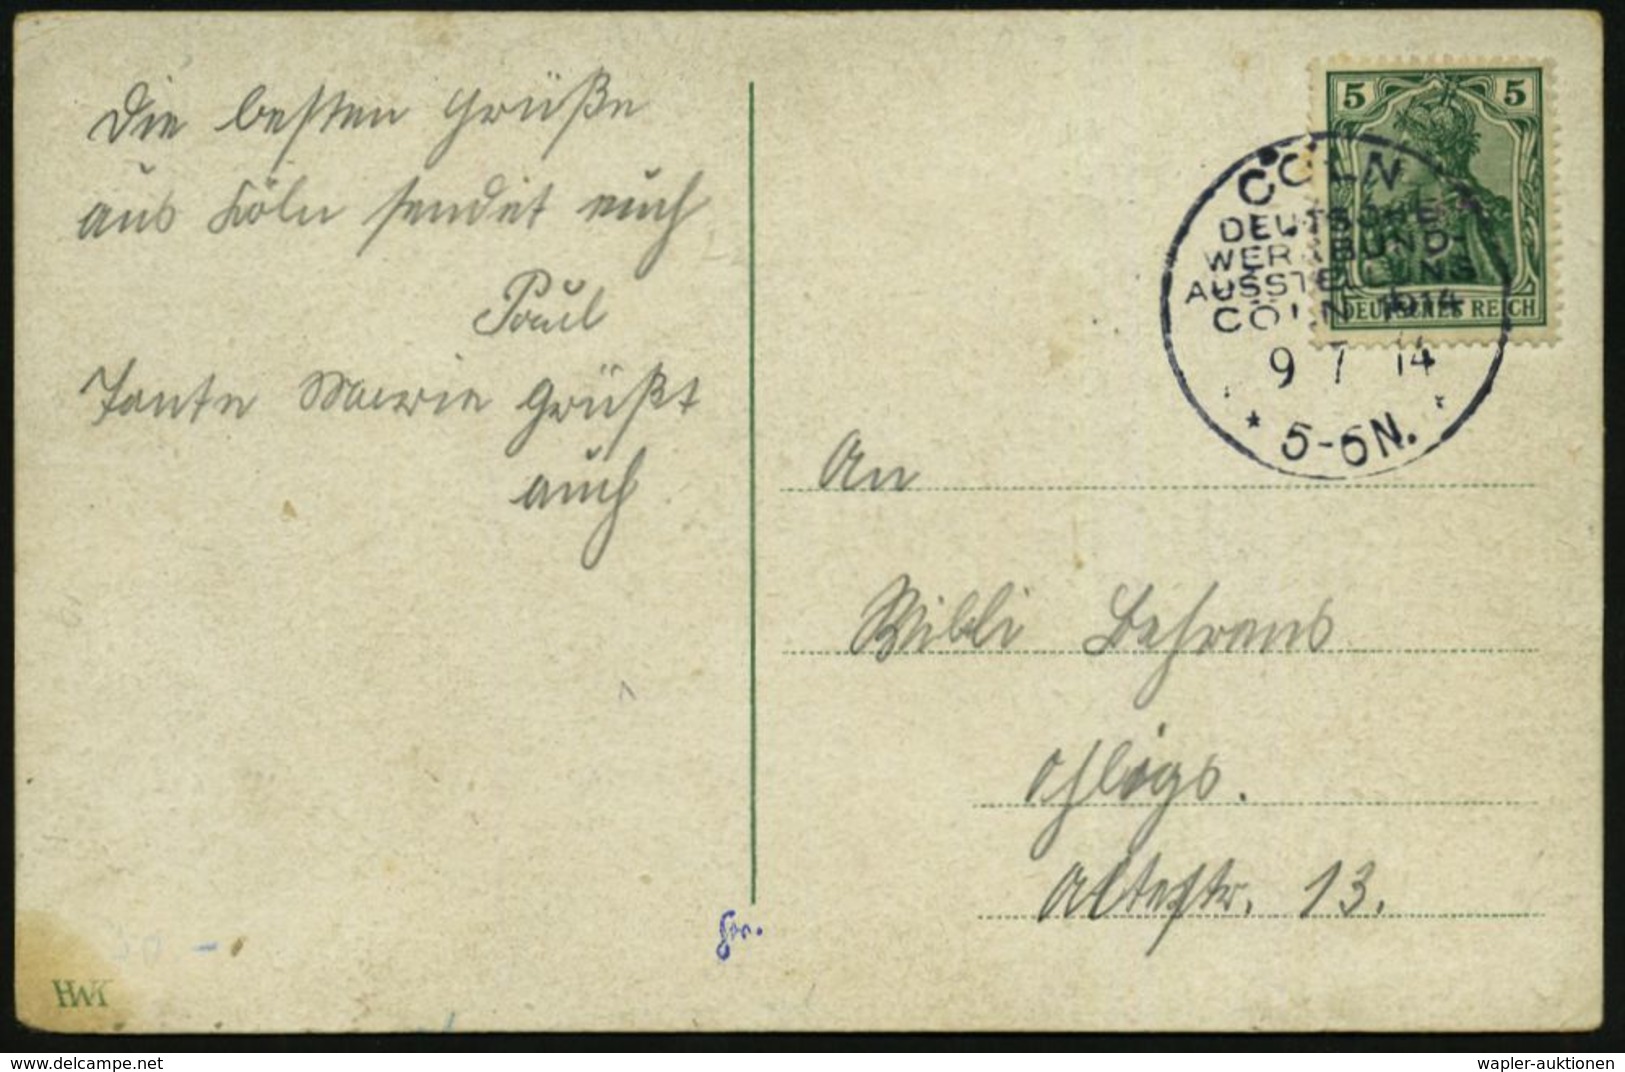 Die besten Grüße
aus Köln sendet euch
Paul
Tante Marie grüßt
auch
5 5
DEUTSCHES REICH
CÖLN
DEUTSCHE
WERKBUND-
AUSSTELLUNG
CÖLN 1914
9 7 14
* 5-6N. *
An
Willi Behrens
Ohligs.
Altestr. 13.
HWK
delcampe.net
wapler-auktionen